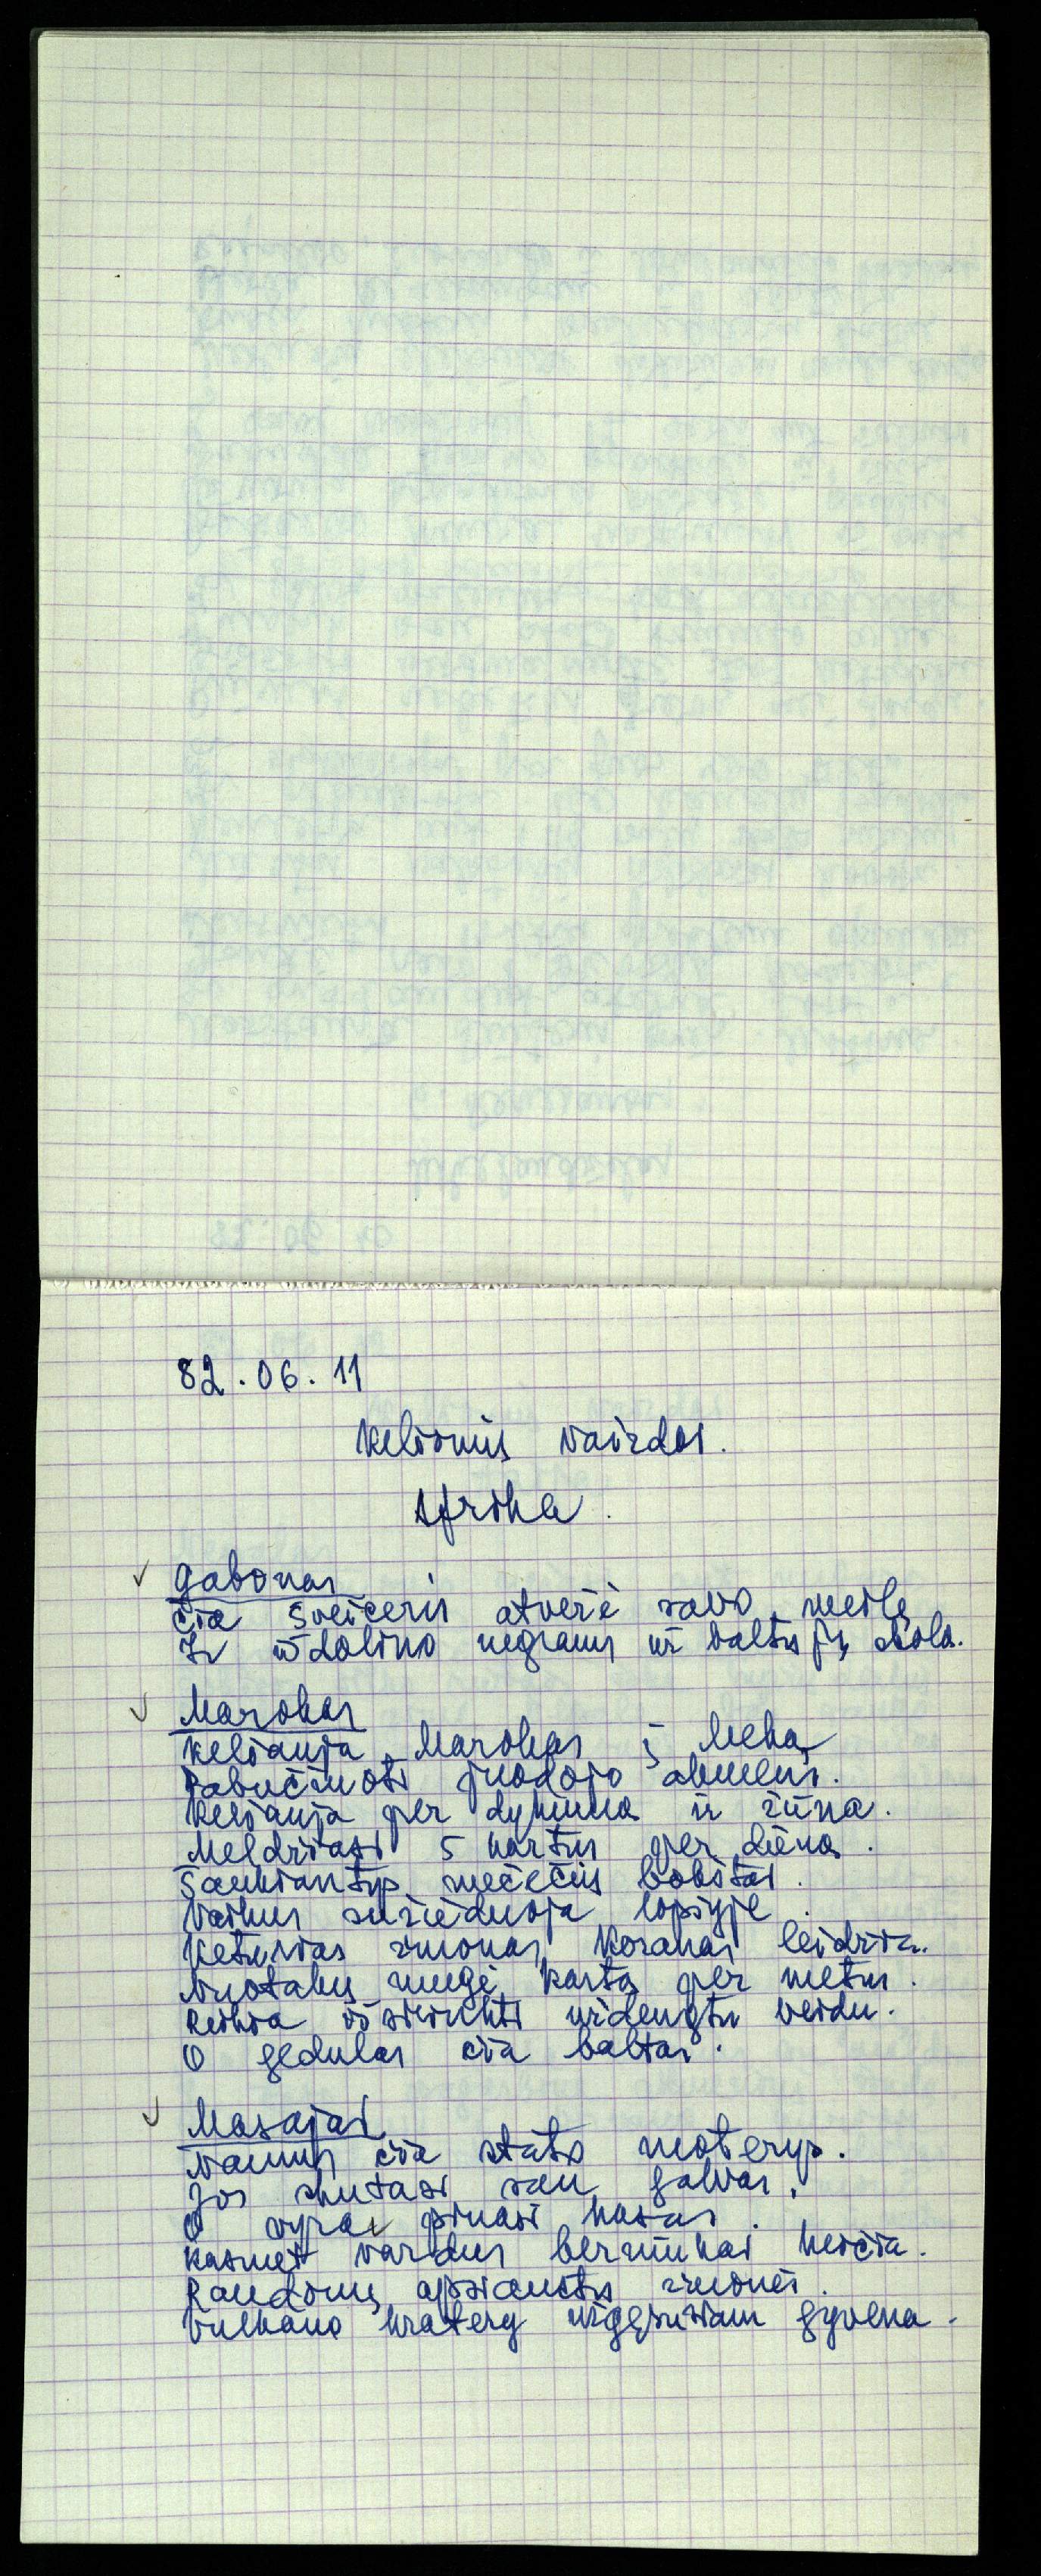 82.06.11
Kelionių vaizdai.
Afrika.
Gabonas
Čia šveiceris atvėrė savo meilę
Ir išdalino negrams už baltųjų skolą.
Marokas
Keliauja Marokas į Meką
Pabučiuoti juodojo akmens.
Keliauja per dykumą ir žūna.
Meldžiasi 5 kartus per dieną.
Šaukiantys mečečių bokštai.
Vaikus sužieduoja lopšyje.
Keturias žmonas Koranas leidžia.
Nuotakų mugė kartą per metus.
Reikia išsirinkti uždengtu veidu.
O gedulas čia baltas.
Masajai
Namus čia stato moterys.
Jos skutasi sau galvas,
O vyrai pinasi kasas.
Kasmet vardus berniukai keičia.
Raudonų apsiaustų žmonės.
Vulkano kraterį užgesusiam gyvena.